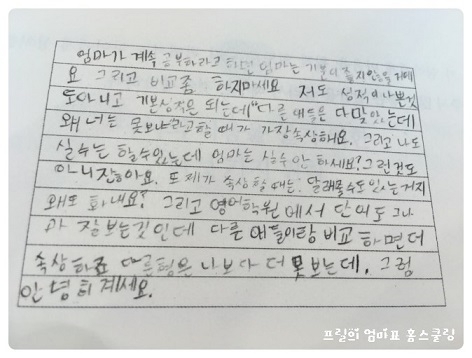 엄마가 계속 공부하라고 하면 엄마는 기분이 좋지않을거예
요 그리고 비교좀 하지마세요 저도 성적이 나쁜것
도아니고 기본성적은 되는데 "다른 애들은 다맞았는데
왜 너는 못보냐"라고할 때가 가장속상해요. 그리고 나도
실수는 할수있는데 엄마는 실수 안 하세요? 그런것도
아니잖아요. 또 제가 속상 할 때는 달래줄수도있는거지
왜또 화내요? 그리고 영어학원에서 단어도 그나
마 잘보는것인데 다른 애들이랑 비교하면 더
속상하죠 다른형은 나보다 더 못보는데. 그럼
안녕히 계세요.
프릴리 엄마표 홈스쿨링